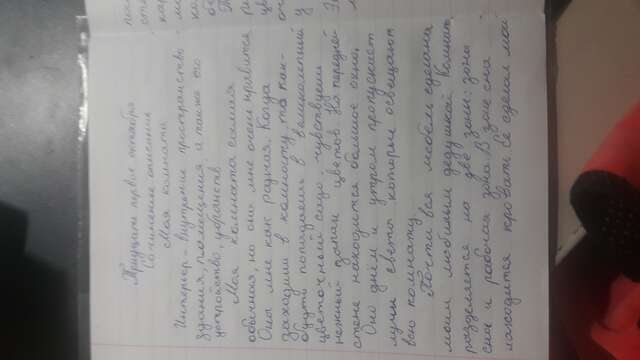 Тридцать первое октября
Сочинение описание
Моя комната
Интерьер - внутренне пространство
здания, помещения, а также его
устройство, убранств
Моя комната самая
обычная, но она мне очень нравится.
Она мне как родная. Когда
заходиш в комносту, то как-
будто попадаешь в великолепный
цветочный садо, чувствуеш
нежный запах цветов. На передней
стене находится большое окно.
Оно днём и утром пропускает
лучи света которые освещают
всю комнату.
Почти вся мебель сделана
моим любимым дедушкой. Комнат
разделяется на две зоны: зона
сна и рабочая зона. В зоне сна
находится кровать. Её сделал мой